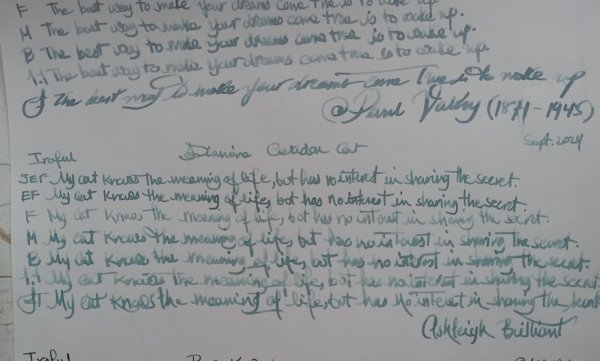 F The best way to make your dreams come true is to wake up.
M The best way to make your dreams come true is to wake up.
B The best way to make your dreams come true is to wake up.
1.1 The best way to make your dreams come true is to wake up
The best way to make your dreams come true is to wake up
@ Paul Valéry (1871-1945)
Sept. 2024
Iroful Diamine Celadon Cat
JEF My cat knows the meaning of life, but has no interest in sharing the secret.
EF My cat knows the meaning of life, but has no interest in sharing the secret.
F My cat knows the meaning of life, but has no interest in sharing the secret.
M My cat knows the meaning of life, but has no interest in sharing the secret.
B My cat knows the meaning of life, but has no interest in sharing the secret.
1.1 My cat knows the meaning of life, but has no interest in sharing the secret.
My cat knows the meaning of life, but has no interest in sharing the secret
Ashleigh Brilliant
Iroful